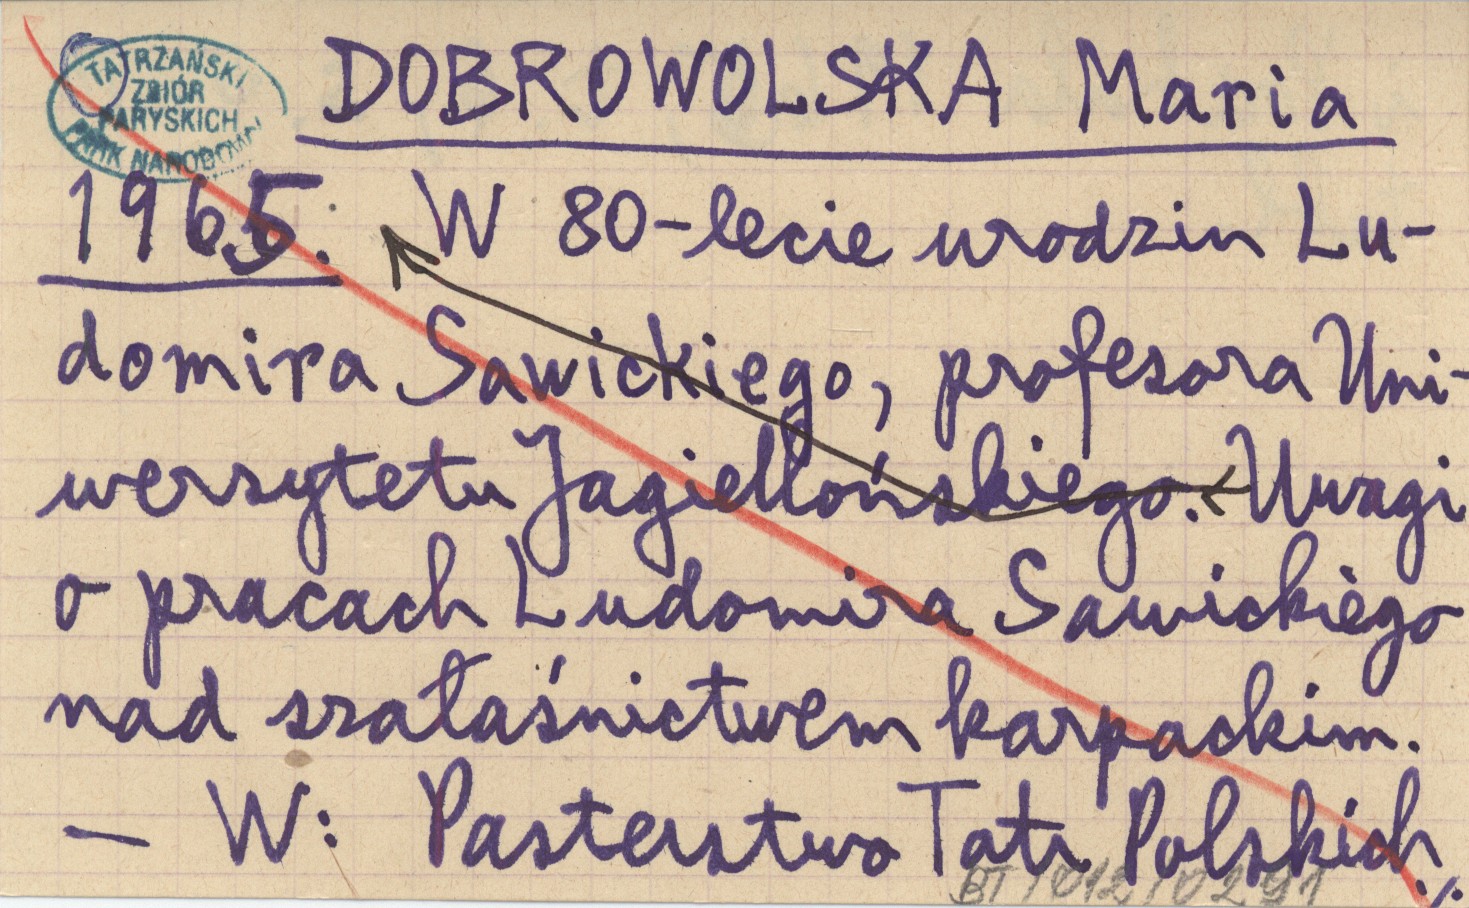 TATRZAŃSKI
ZBIÓR
PARYSKICH
PARK NARODOWY
DOBROWOLSKA Maria
1965. W 80-lecie urodzin Lu-
domira Sawickiego, profesora Uni-
wersytetu Jagiellońskiego. Uwagi
o pracach Ludomira Sawickiego
nad szałaśnictwem karpackim.
— W: Pasterstwo Tatr Polskich
./.
BT/012/0291